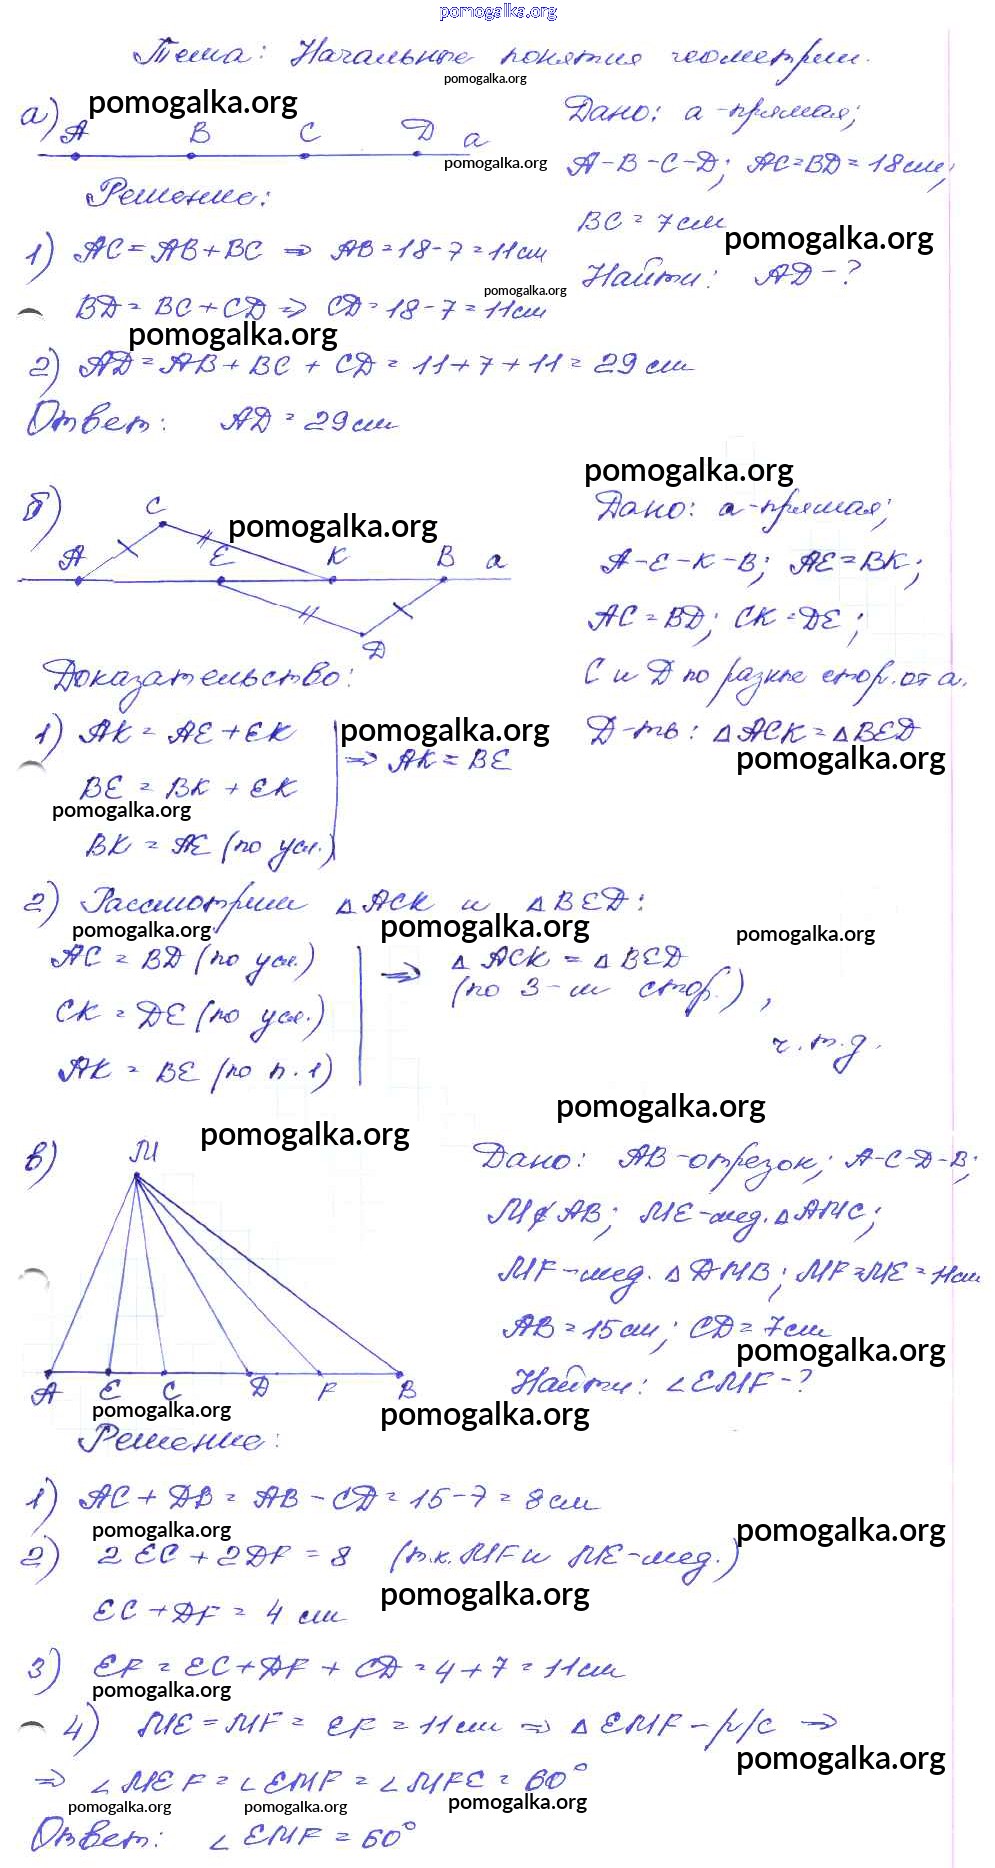 pomogalka.org
Тема: Начальные понятия геометрии.
pomogalka.org
а) pomogalka.org
A B C D a
pomogalka.org
Дано: a-прямая;
A-B-C-D; AC=BD=18см;
BC=7см
pomogalka.org
Найти: AD-?
Решение:
1) AC=AB+BC ⇒ AB=18-7=11см
pomogalka.org
BD=BC+CD ⇒ CD=18-7=11см
pomogalka.org
2) AD=AB+BC+CD=11+7+11=29см
Ответ: AD=29см
pomogalka.org
б)
C
pomogalka.org
A E K B a
D
Дано: a-прямая;
A-E-K-B; AE=BK;
AC=BD; CK=DE;
C и D по разные стор. от a.
Д-ть: △ACK=△BED
pomogalka.org
Доказательство:
1) AK=AE+EK
pomogalka.org
⇒ AK=BE
BE=BK+EK
pomogalka.org
BK=AE (по усл.)
2) Рассмотрим △ACK и △BED:
pomogalka.org pomogalka.org pomogalka.org
AC=BD (по усл.) ⇒ △ACK=△BED
(по 3-м стор.),
CK=DE (по усл.)
ч.т.д.
AK=BE (по п.1)
pomogalka.org
pomogalka.org
в) M
A E C D F B
Дано: AB-отрезок; A-C-D-B;
M∉AB; ME-мед. △AMC;
MF-мед. △DMB; MF=ME=11см
AB=15см; CD=7см
pomogalka.org
Найти: ∠EMF-?
pomogalka.org pomogalka.org
Решение:
1) AC+DB=AB-CD=15-7=8см
pomogalka.org pomogalka.org
2) 2EC+2DF=8 (т.к. MF и ME-мед.)
pomogalka.org
EC+DF=4см
3) EF=EC+DF+CD=4+7=11см
pomogalka.org
4) ME=MF=EF=11см ⇒ △EMF-р/с ⇒
pomogalka.org
⇒ ∠MEF=∠EMF=∠MFE=60°
pomogalka.org pomogalka.org pomogalka.org
Ответ: ∠EMF=60°